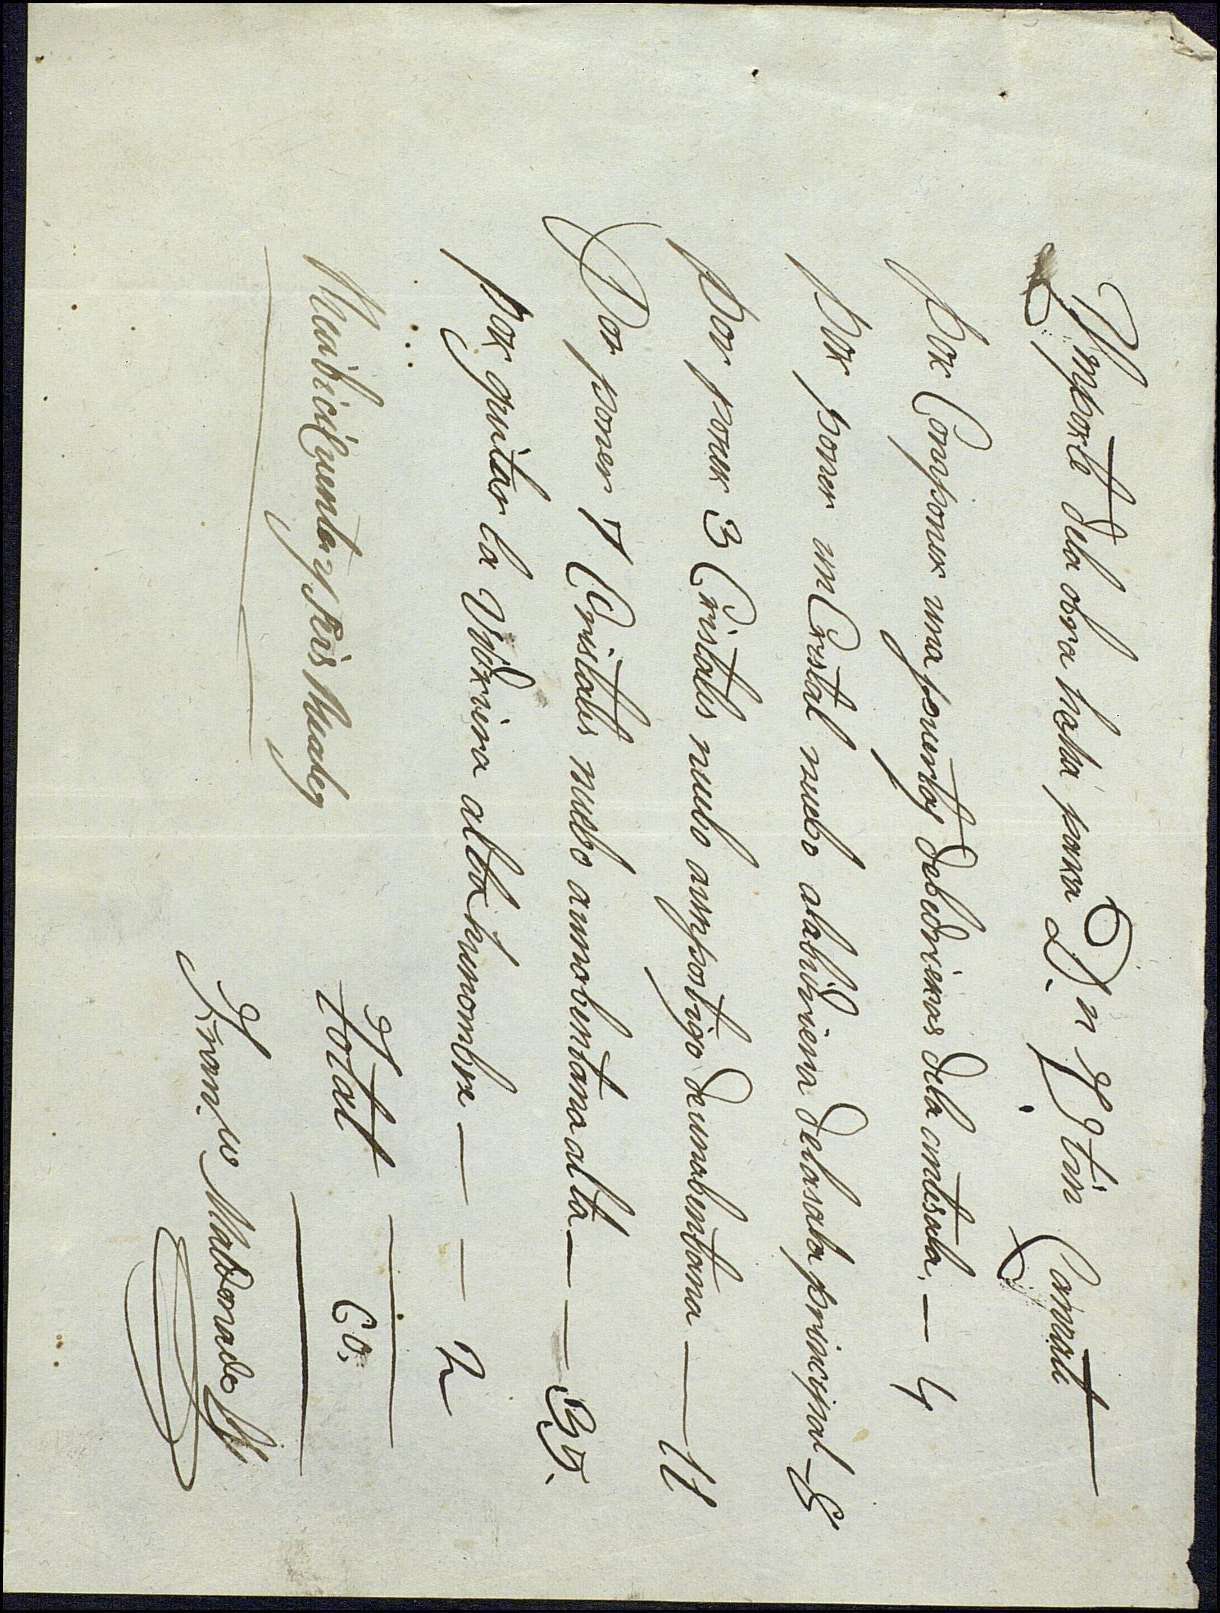 Ymporte dela obra hecha para D.n Agtin
por Componer una puertas debedrieras dela antesala. — 4
por poner un Cristal nuebo alabidriera delasala principal — 8
por poner 3 Cristales nuebo aunpostigo deunabentana — 11
Por poner 7 Cristales nuebo aunabentana alta — 35.
por quitar la Vidriera alta — 2
total — 60.
Recibi Cicuenta y seis Reales
Fran.co Maldonado